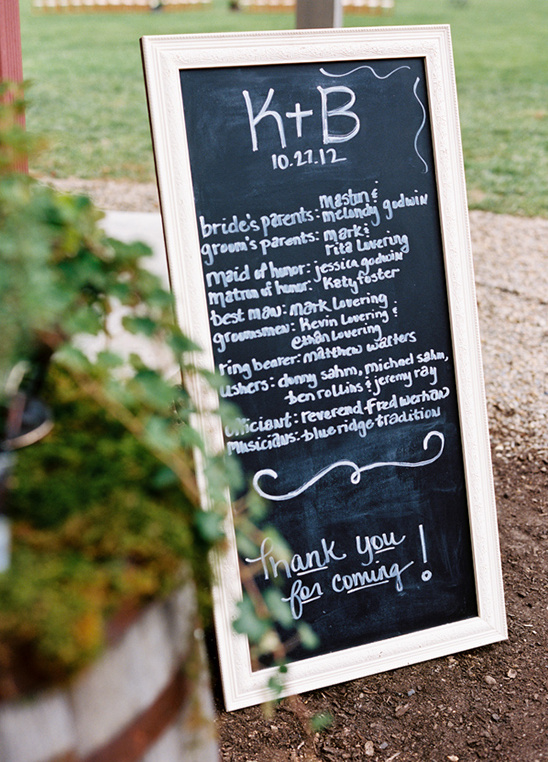 K+B
10.27.12
bride's parents: maston &
melondy godwin
groom's parents: mark &
rita Lovering
maid of honor: jessica godwin
matron of honor: Katy foster
best man: mark Lovering
groomsmen: Kevin Lovering &
ethan Lovering
ring bearer: matthew walters
ushers: donny sahm, michael sahm,
ben rollins & jeremy ray
officiant: reverend Fred werhan
musicians: blue ridge tradition
Thank you
for coming!